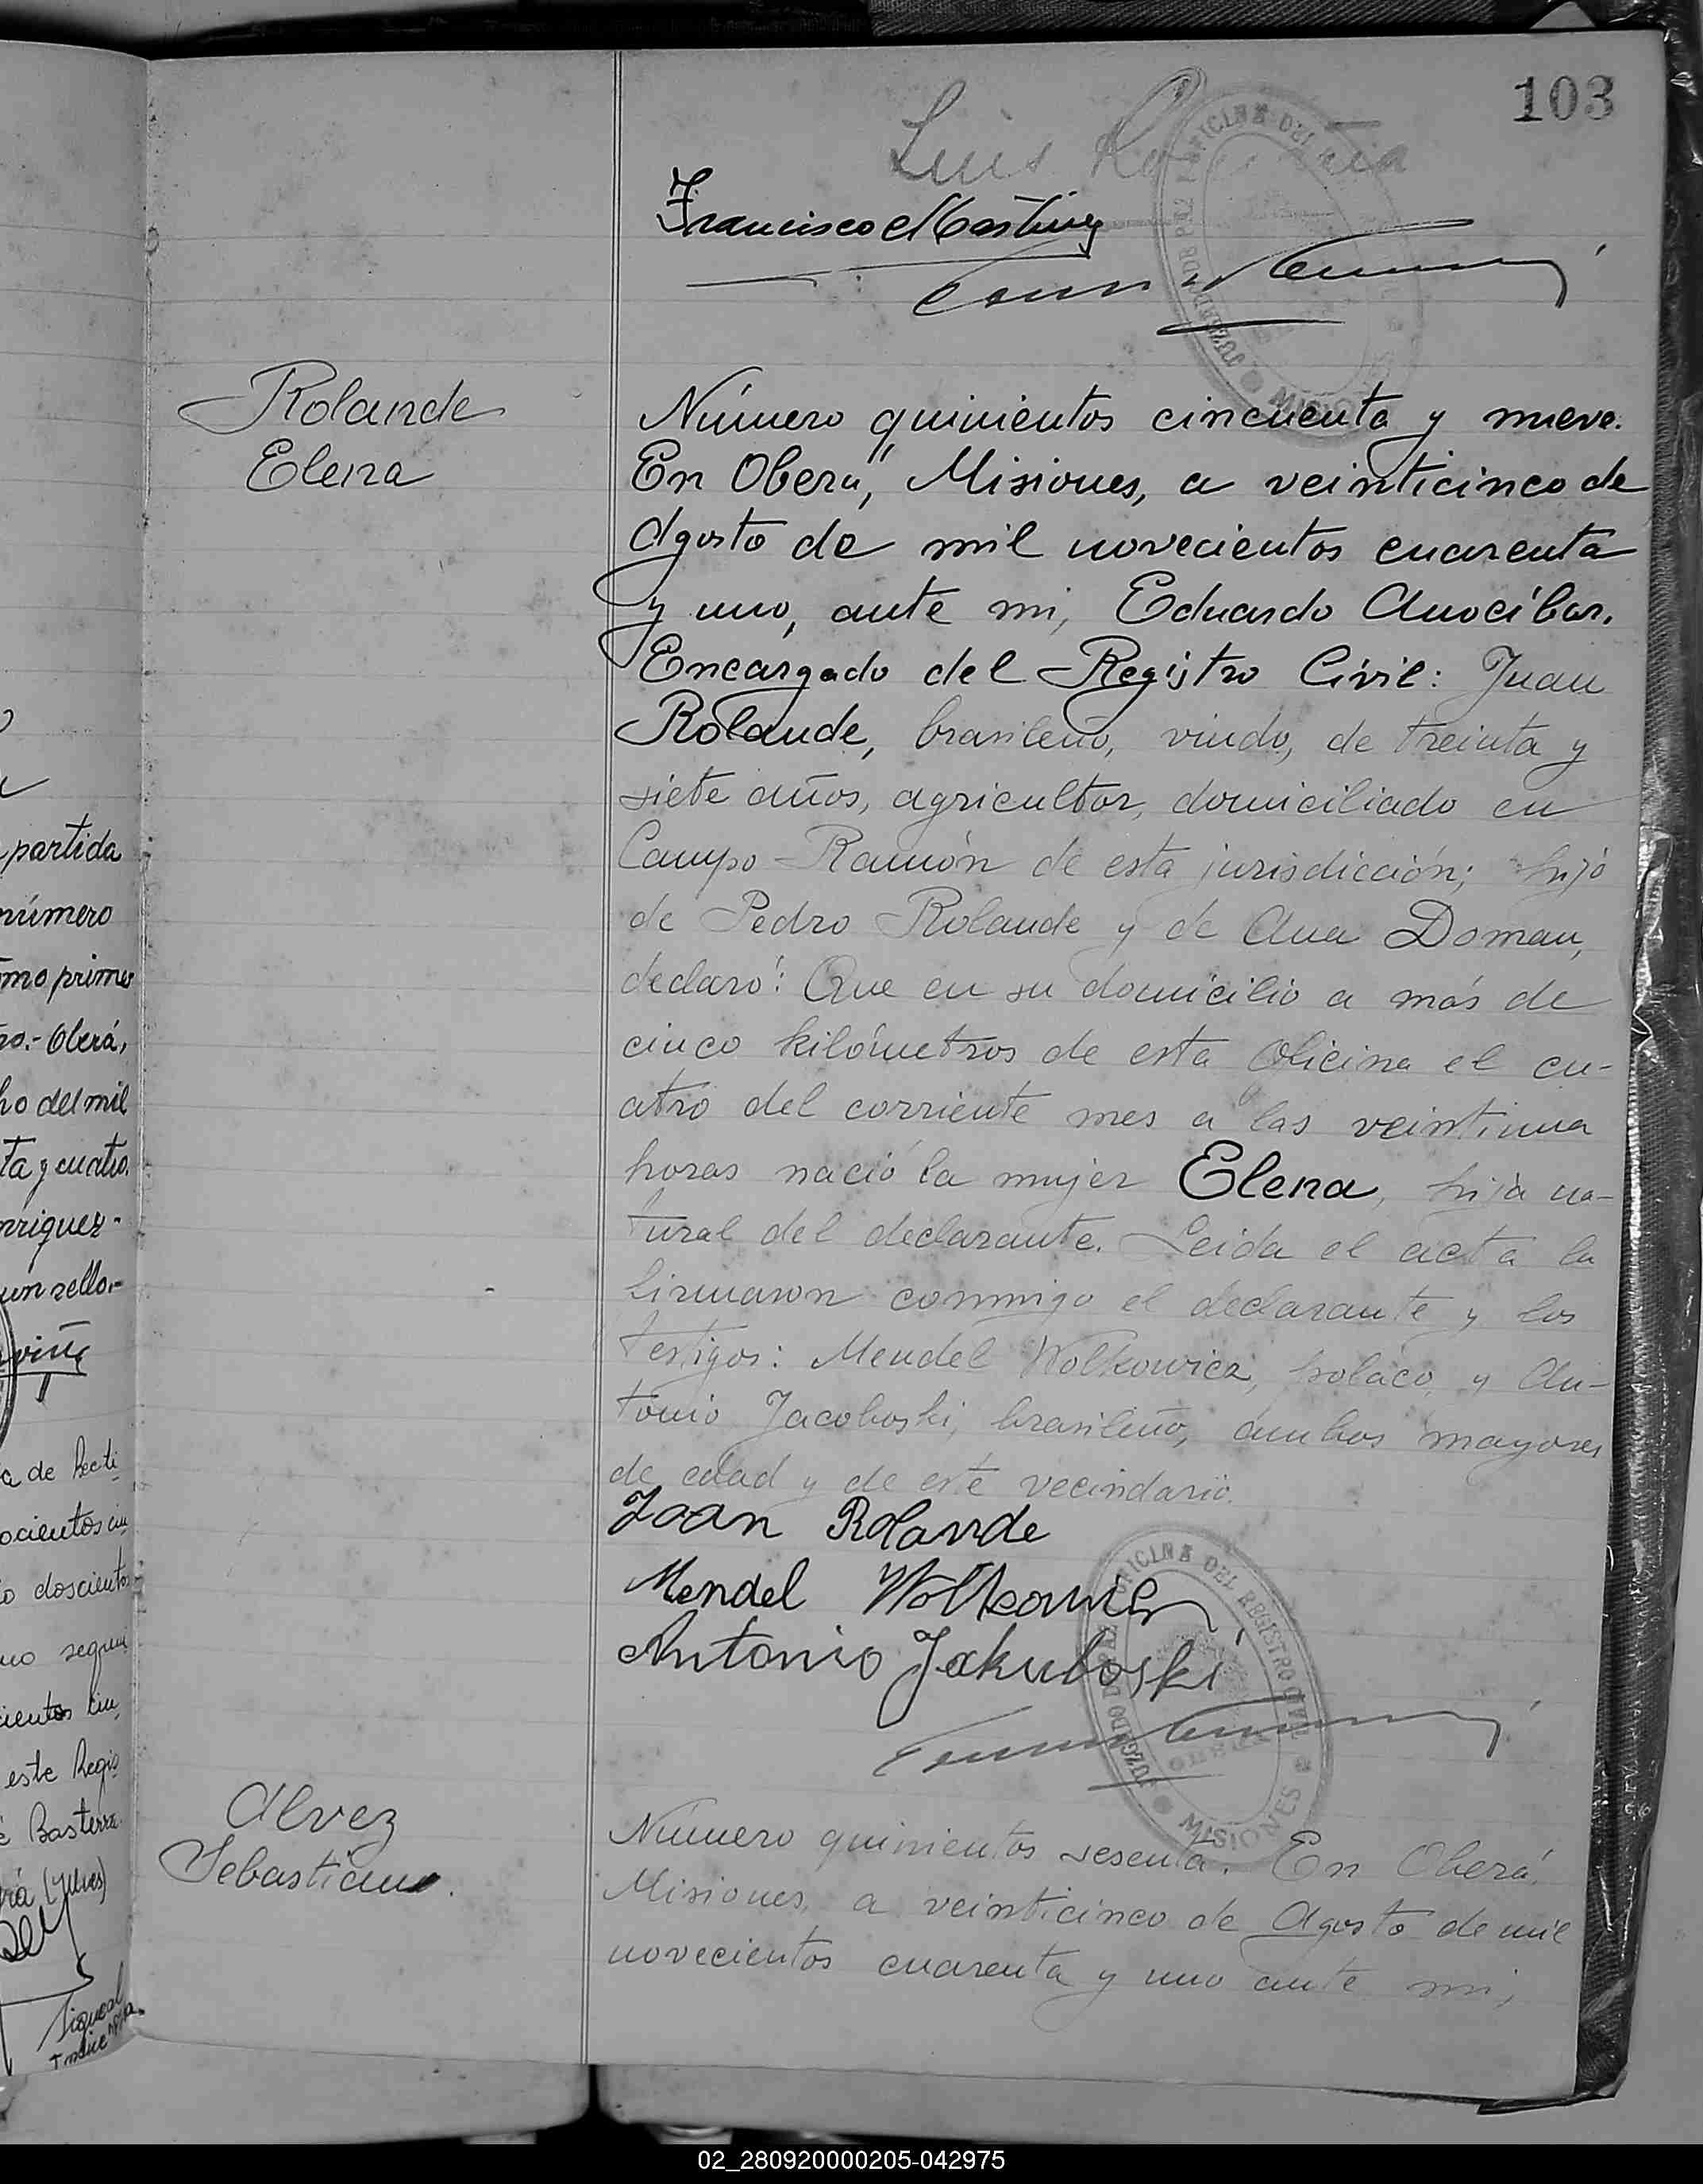 103
Luis
Francisco
Rolande
Elena
Número quinientos cincuenta y nueve.
En Oberá, Misiones, a veinticinco de
Agosto de mil novecientos cuarenta
y uno, ante mi, Eduardo Anocíbar.
Encargado del Registro Civil: Juan
Rolande, brasileño, viudo, de treinta y
siete años, agricultor, domiciliado en
Campo Ramón de esta jurisdicción; hijo
de Pedro Rolande y de Ana Doman,
declaró: Que en su domicilio a más de
cinco kilómetros de esta Oficina el cu-
atro del corriente mes a las veintiuna
horas nació la mujer Elena, hija na-
tural del declarante. Leida el acta la
firmaron conmigo el declarante y los
testigos: Mendel Wolkowicz, polaco, y An-
tonio Jacoboski, brasileño, ambos mayores
de edad y de este vecindario.
Joan Rolande
Mendel Wolkowicz
Antonio Jakuboski
OFICINA DEL REGISTRO CIVIL
JUZGADO DE PAZ
MISIONES
Alvez
Sebastiana.
Número quinientos sesenta. En Oberá,
Misiones, a veinticinco de Agosto de mil
novecientos cuarenta y uno ante mi,
partida
número
mo primer
Oberá,
ho del mil
ta y cuatro.
nriquez-
un sello.-
a de Recti
ocientos cin
o doscientos
no segun
cientos cin
este Regis
Basterra
02_280920000205-042975